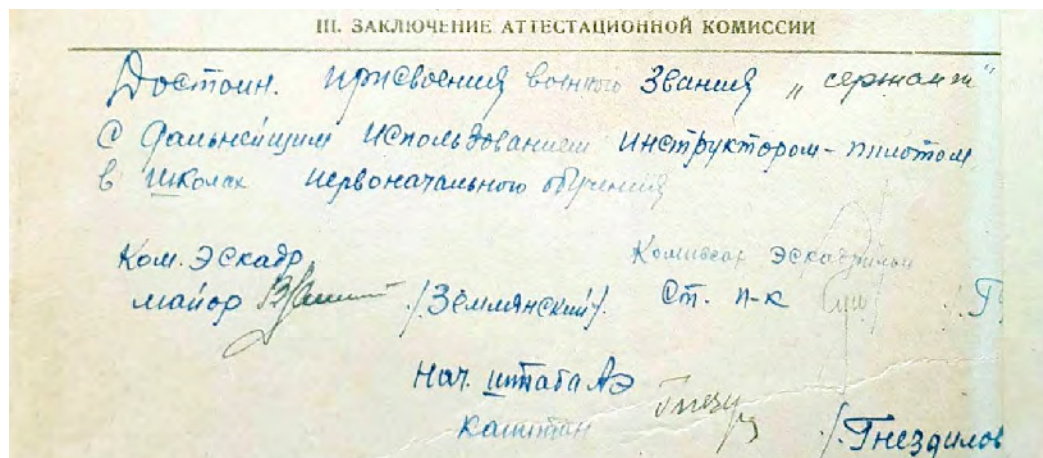 III. ЗАКЛЮЧЕНИЕ АТТЕСТАЦИОННОЙ КОМИССИИ
Достоин. присвоения военного звания „сержант“
с дальнейшим использованием инструктором-пилотом
в школах первоначального обучения
Ком. Эскадр Комиссар эскадрильи
майор /Землянский/. Ст. п-к
Нач. штаба АЭ
капитан /Гнездилов